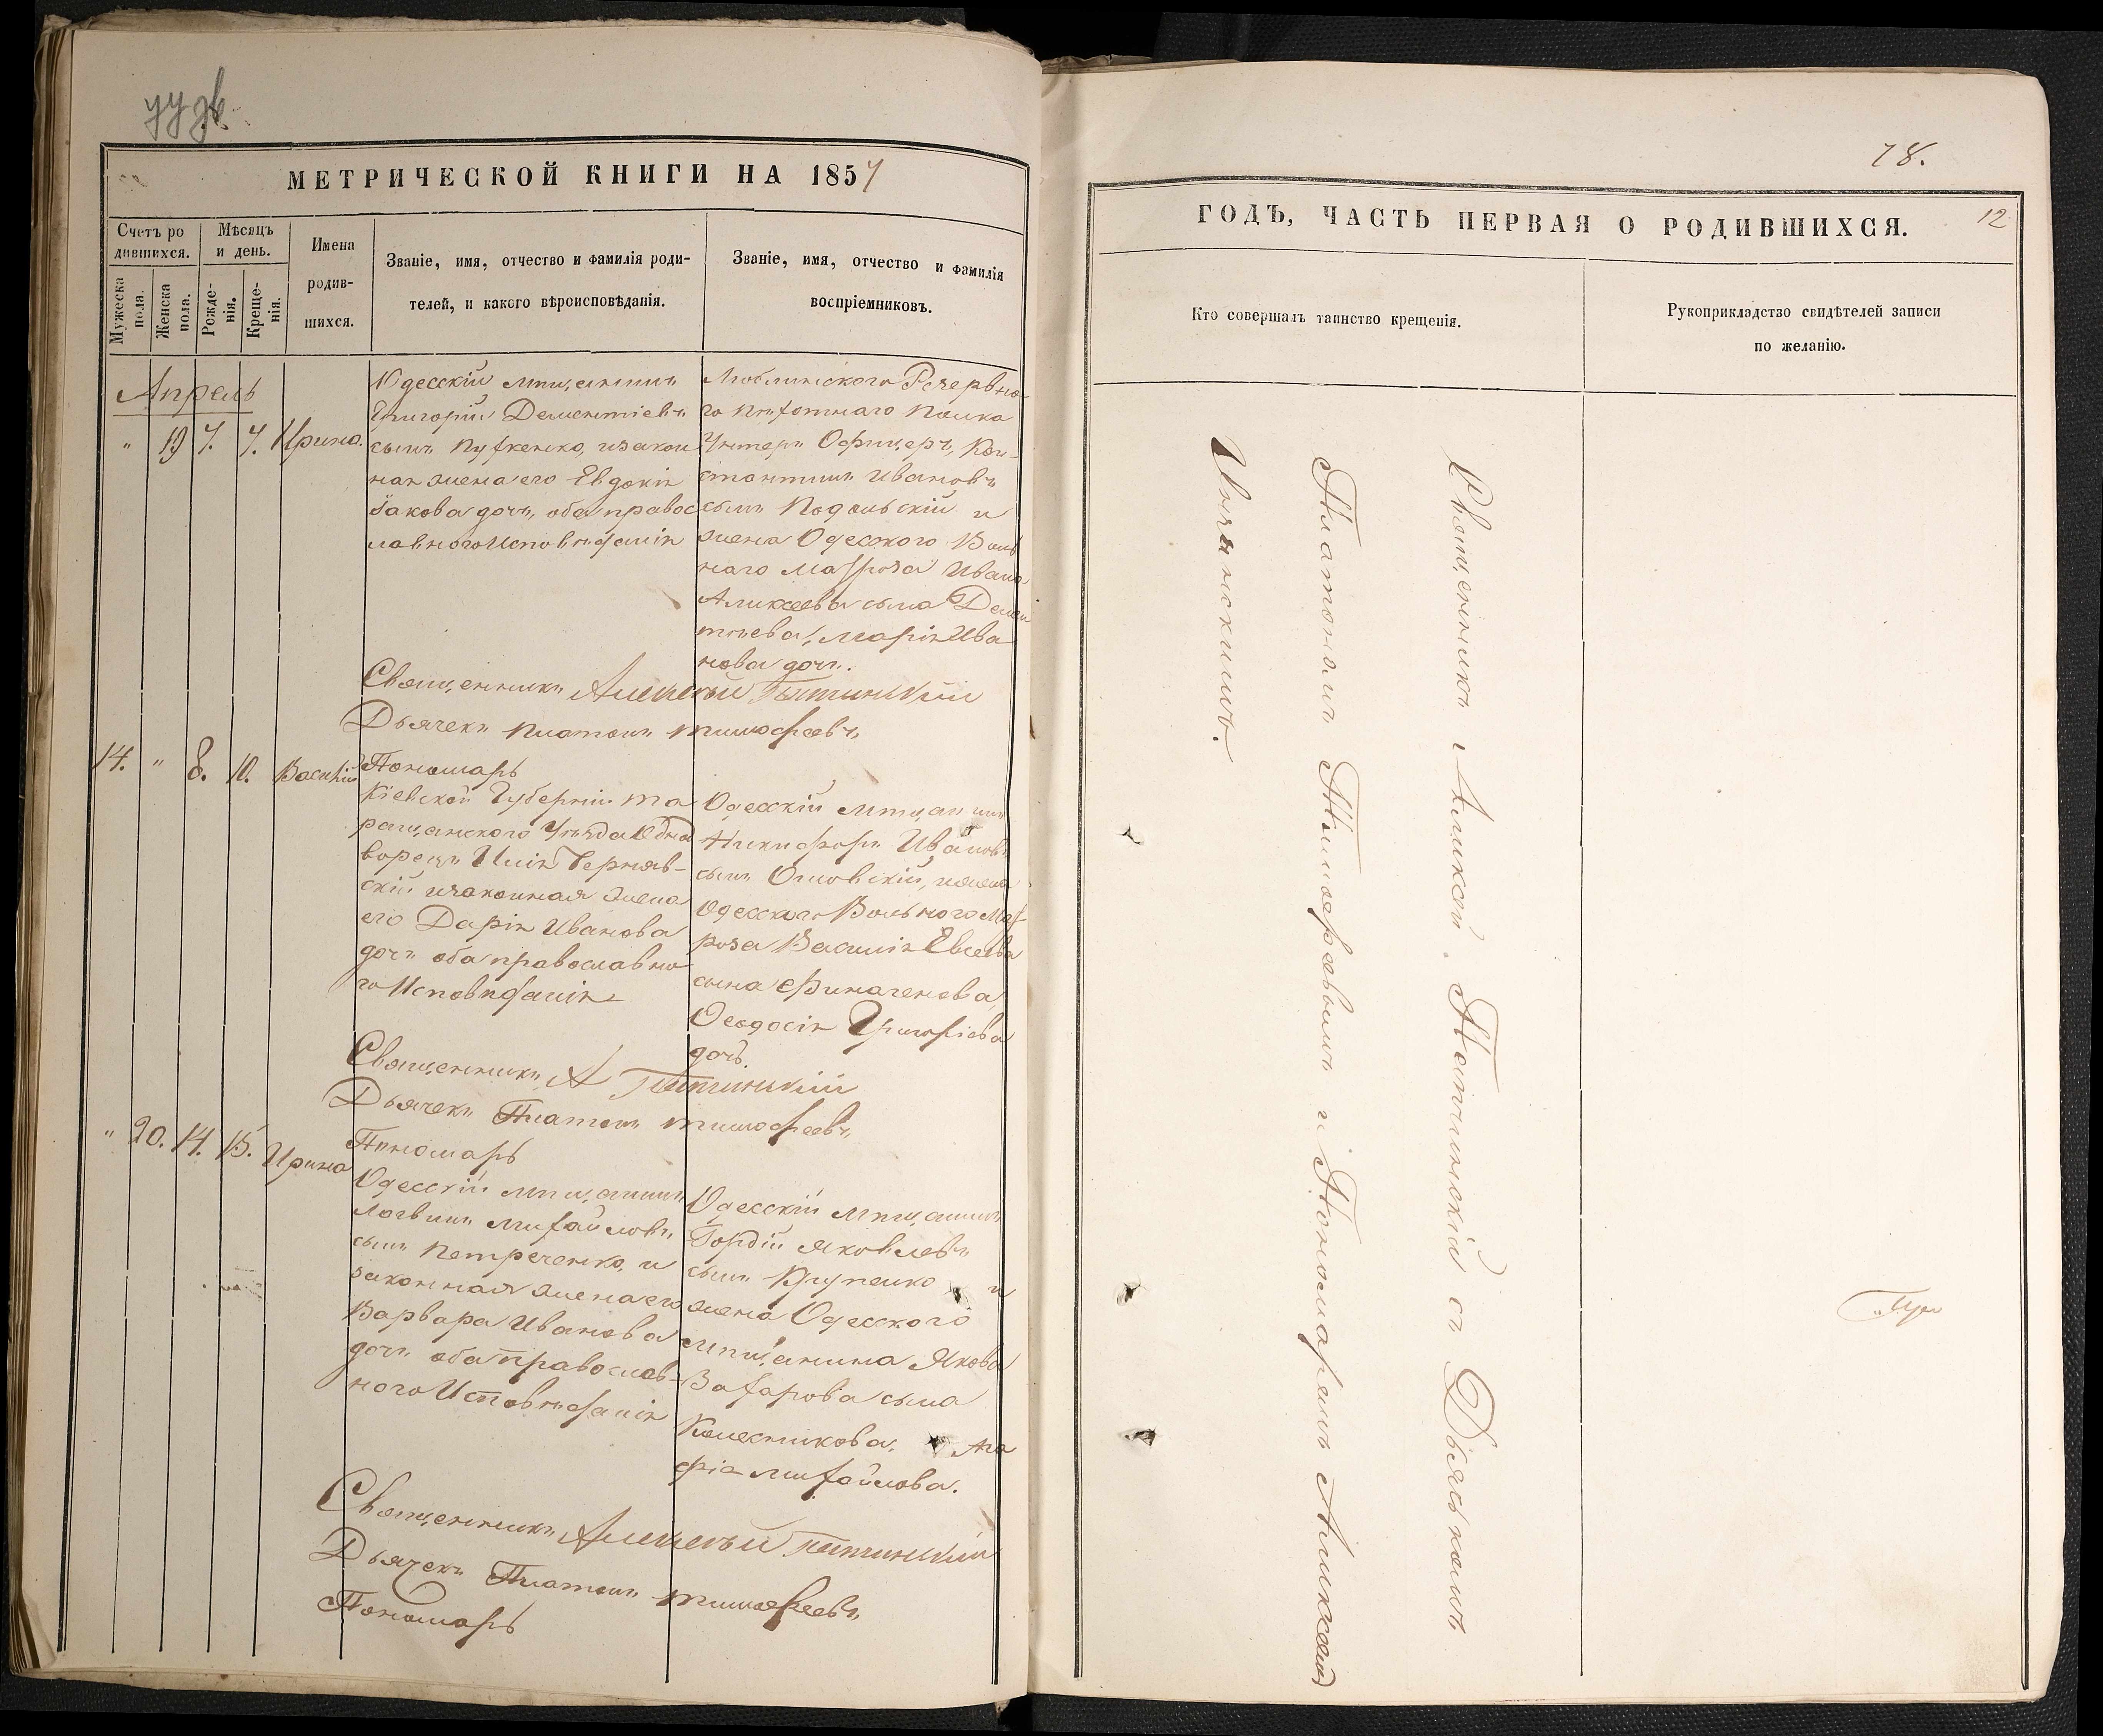 МЕТРИЧЕСКОЙ КНИГИ НА 1857
Счетъ ро
дившихся.
Мѣсяцъ
и день.
Мужеска
пола.
Женска
пола.
Рожде-
нія.
Креще-
нія.
Имена
родив-
шихся.
Званіе, имя, отчество и фамилія роди-
телей, и какого вѣроисповѣданія.
Званіе, имя, отчество и фамилія
воспріемниковъ.
Апрель
" 19 7. 7. Ирина.
Одесскій мѣщанинъ
Григорій Дементіевъ
сынъ, изакон
ная жена его Евдокія
Іакова дочь, оба правос
лавного Исповѣданія
Люблинского Резервно
го пѣхотнаго полка
Унтеръ Офицеръ, Кон-
стантинъ Ивановъ
сынъ Подольскій и
жена Одесского Воль
наго Матроза Ивана
Аликсѣева сына Демен
тьева, Марія Ива
нова дочь.
Священникъ Алексѣй
Дьячекъ Платонъ Тимофеевъ
Пономарь
14. " 8. 10. Василій
Кіевской Губерніи Та
ращанского Уѣзда Одно
ворецъ Илія Черняв-
скій изаконная жена
его Дарія Иванова
дочь оба православно
го Исповѣданія
Одесскій мѣщанинъ
Никифоръ Ивановъ
сынъ, ижена
Одесского Вольного Мат-
роза Василія Евсеева
сына Финагенова,
Феодосія Григоріева
дочь.
Священникъ А
Дьячекъ Платонъ Тимофеевъ
Пономарь
" 20. 14. 15. Ирина
Одесскій мѣщанинъ
Логвинъ Михайловъ
сынъ Петреченко, и
законная жена его
Варвара Иванова
дочь оба православ-
ного Исповѣданія
Одесскій мѣщанинъ
Гордій Яковлевъ
сынъ и
жена Одесского
мѣщанина Якова
Захарова сына
Колесникова, Ага
фія Михайлова.
Священникъ Алексѣй
Дьячекъ Платонъ Тимофеевъ
Пономарь
78.
12
ГОДЪ, ЧАСТЬ ПЕРВАЯ О РОДИВШИХСЯ.
Кто совершалъ таинство крещенія.
Рукоприкладство свидѣтелей записи
по желанію.
Священникъ Аликсей съ Дьячкомъ
Платономъ Тимофеевымъ и Пономаремъ Аликсеемъ